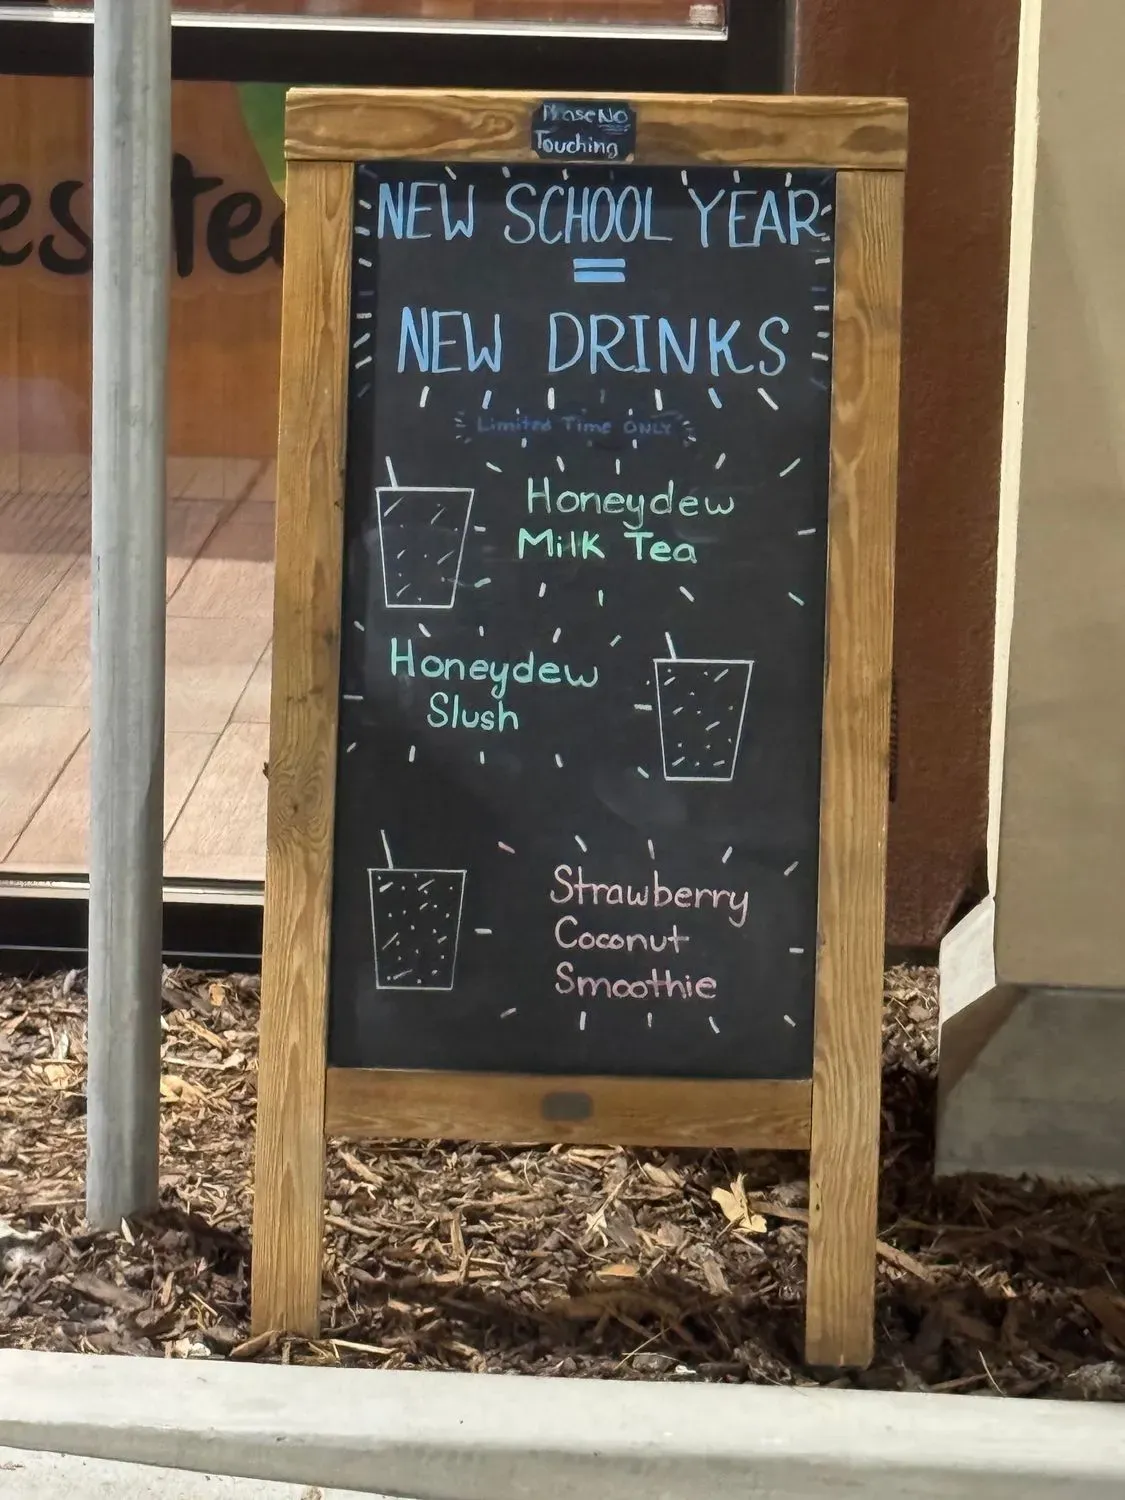 Please NO
Touching
NEW SCHOOL YEAR
=
NEW DRINKS
Limited Time ONLY
Honeydew
Milk Tea
Honeydew
Slush
Strawberry
Coconut
Smoothie